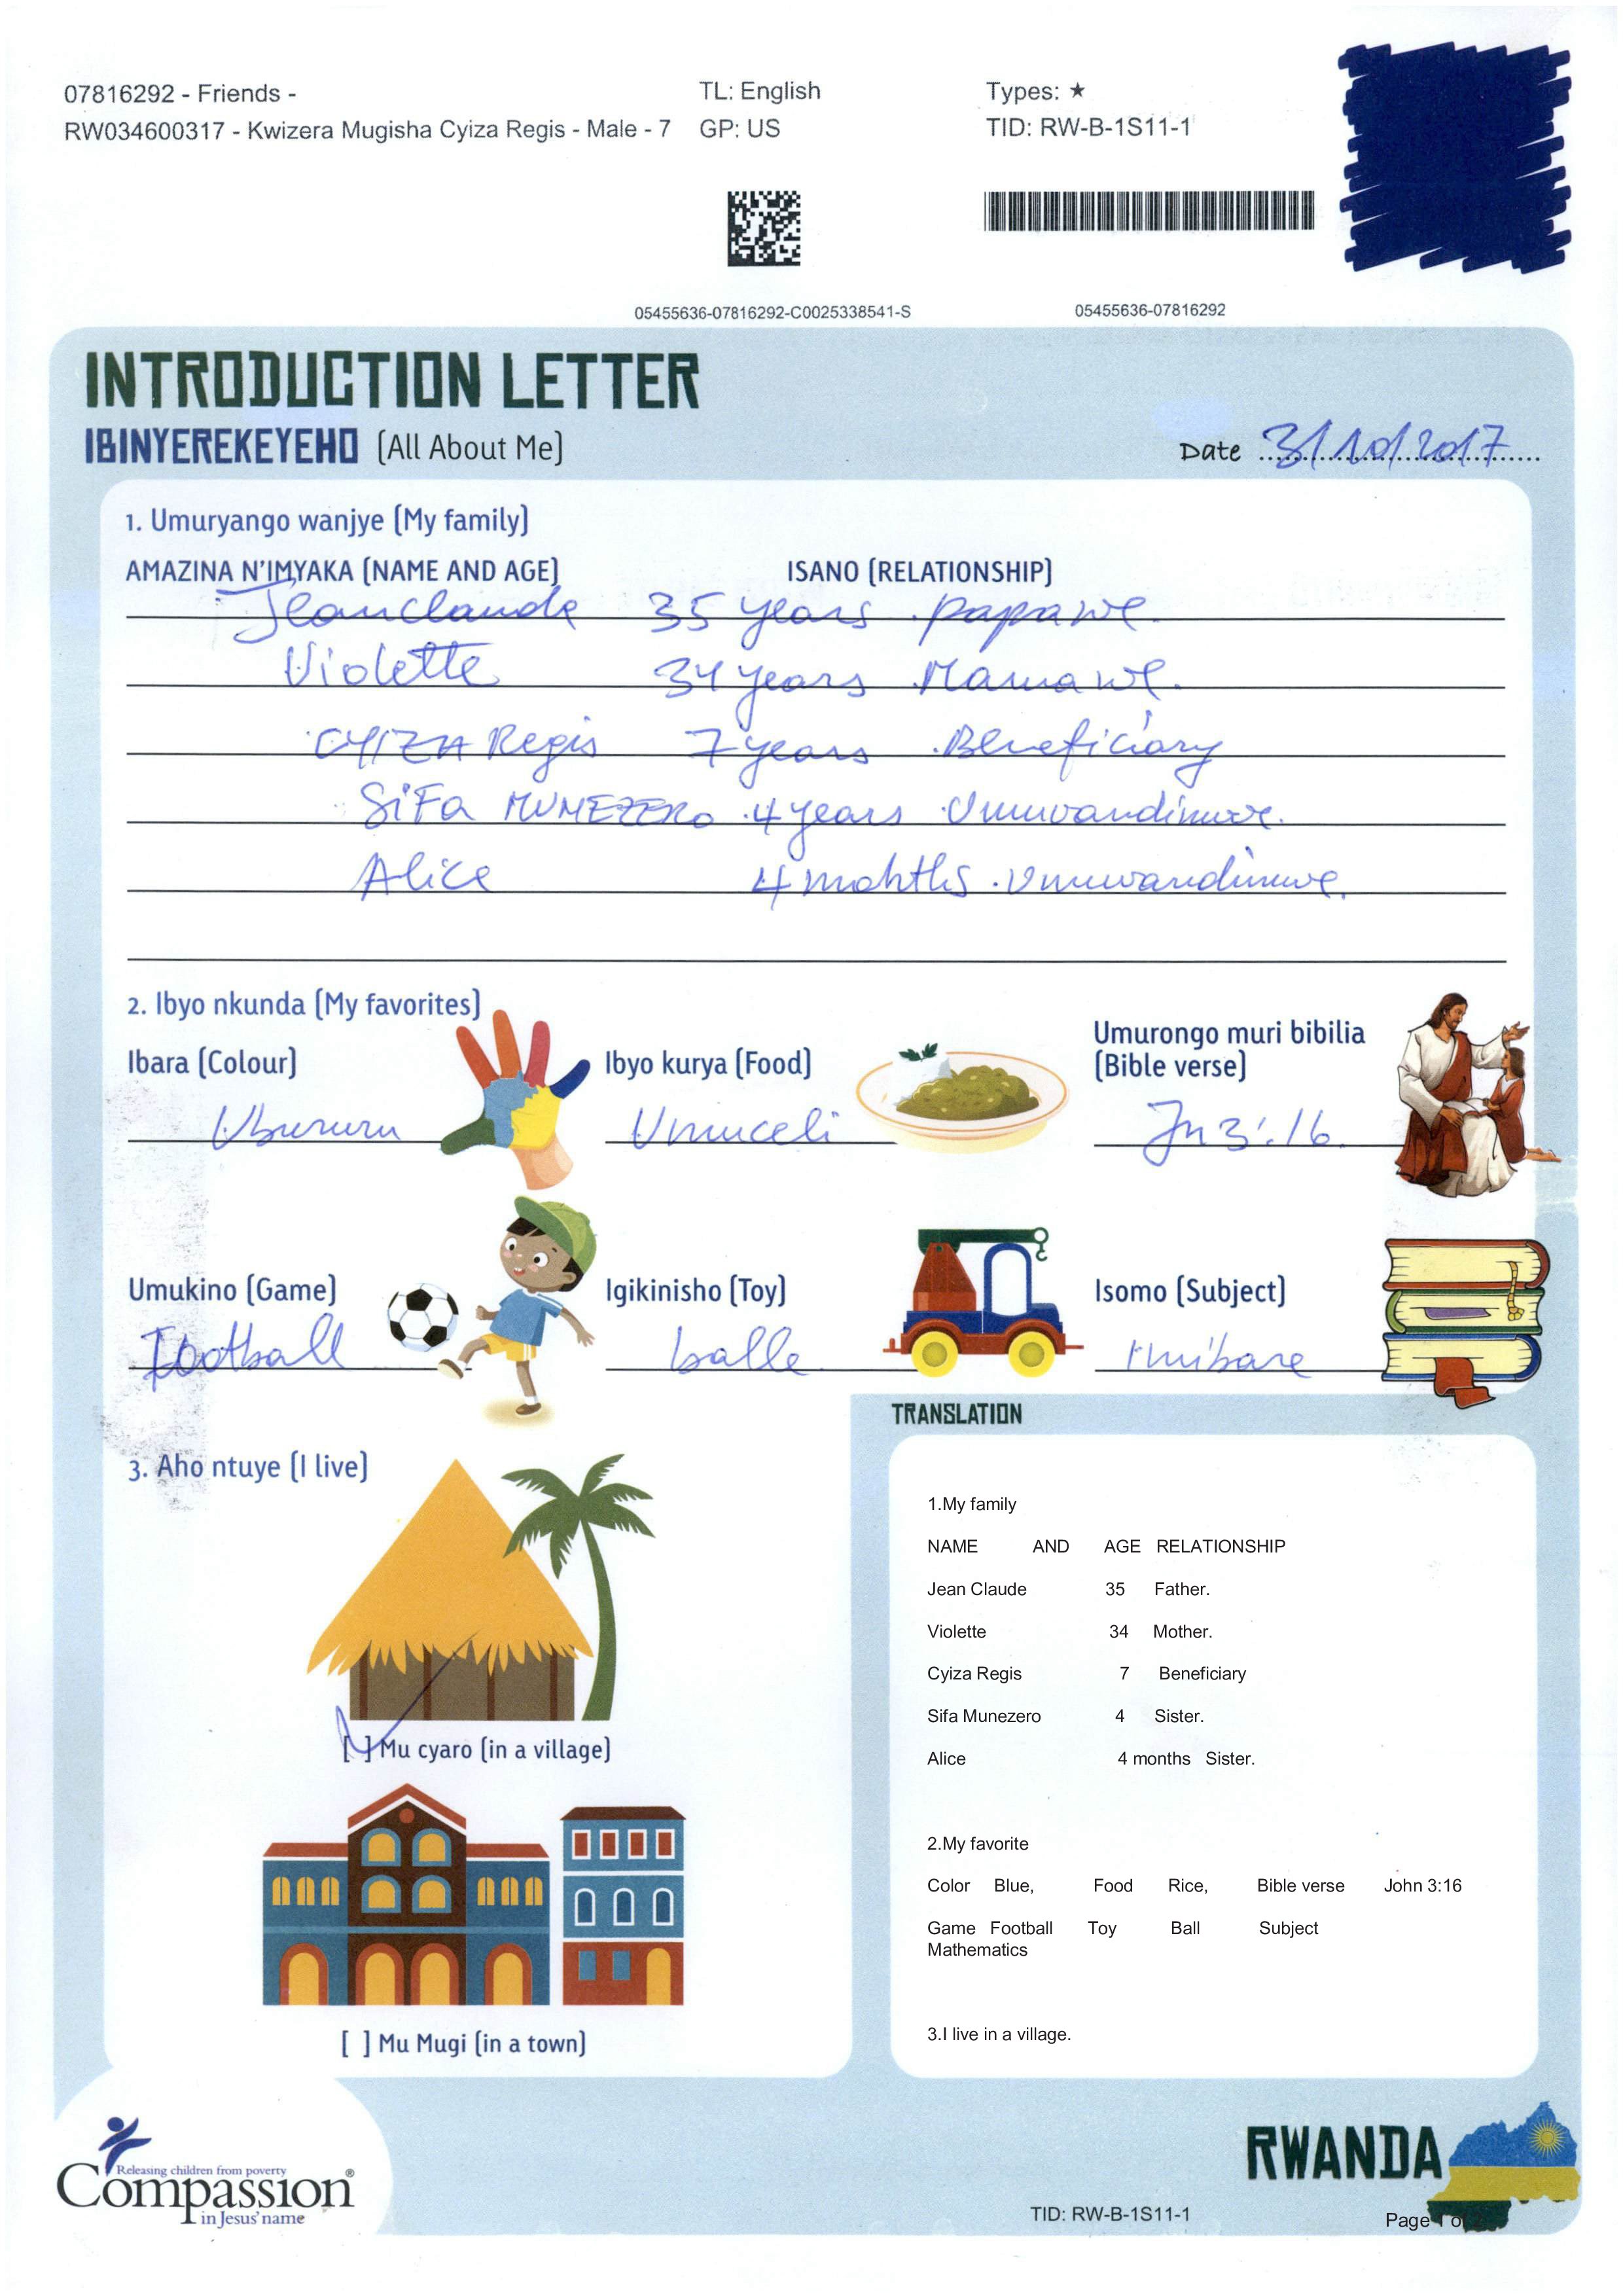 07816292 - Friends - TL: English Types: ★
RW034600317 - Kwizera Mugisha Cyiza Regis - Male - 7 GP: US TID: RW-B-1S11-1
05455636-07816292-C0025338541-S 05455636-07816292
INTRODUCTION LETTER
IBINYEREKEYEHO (All About Me) Date 31/10/2017
1. Umuryango wanjye (My family)
AMAZINA N'IMYAKA (NAME AND AGE) ISANO (RELATIONSHIP)
Jeanclaude 35 years papawe.
Violette 34 years Mamawe.
CYIZA Regis 7 years Beneficiary
SiFa MUNEZERO 4 years Umuvandimwe.
Alice 4 months Umuvandimwe.
2. Ibyo nkunda (My favorites)
Ibara (Colour) Ibyo kurya (Food) Umurongo muri bibilia (Bible verse)
Ubururu Umuceli Jn 3:16
Umukino (Game) Igikinisho (Toy) Isomo (Subject)
Football balle imibare
3. Aho ntuye (I live)
[ ] Mu cyaro (in a village)
[ ] Mu Mugi (in a town)
TRANSLATION
1.My family
NAME AND AGE RELATIONSHIP
Jean Claude 35 Father.
Violette 34 Mother.
Cyiza Regis 7 Beneficiary
Sifa Munezero 4 Sister.
Alice 4 months Sister.
2.My favorite
Color Blue, Food Rice, Bible verse John 3:16
Game Football Toy Ball Subject
Mathematics
3.I live in a village.
Releasing children from poverty
Compassion®
in Jesus' name
RWANDA
TID: RW-B-1S11-1
Page 1 of